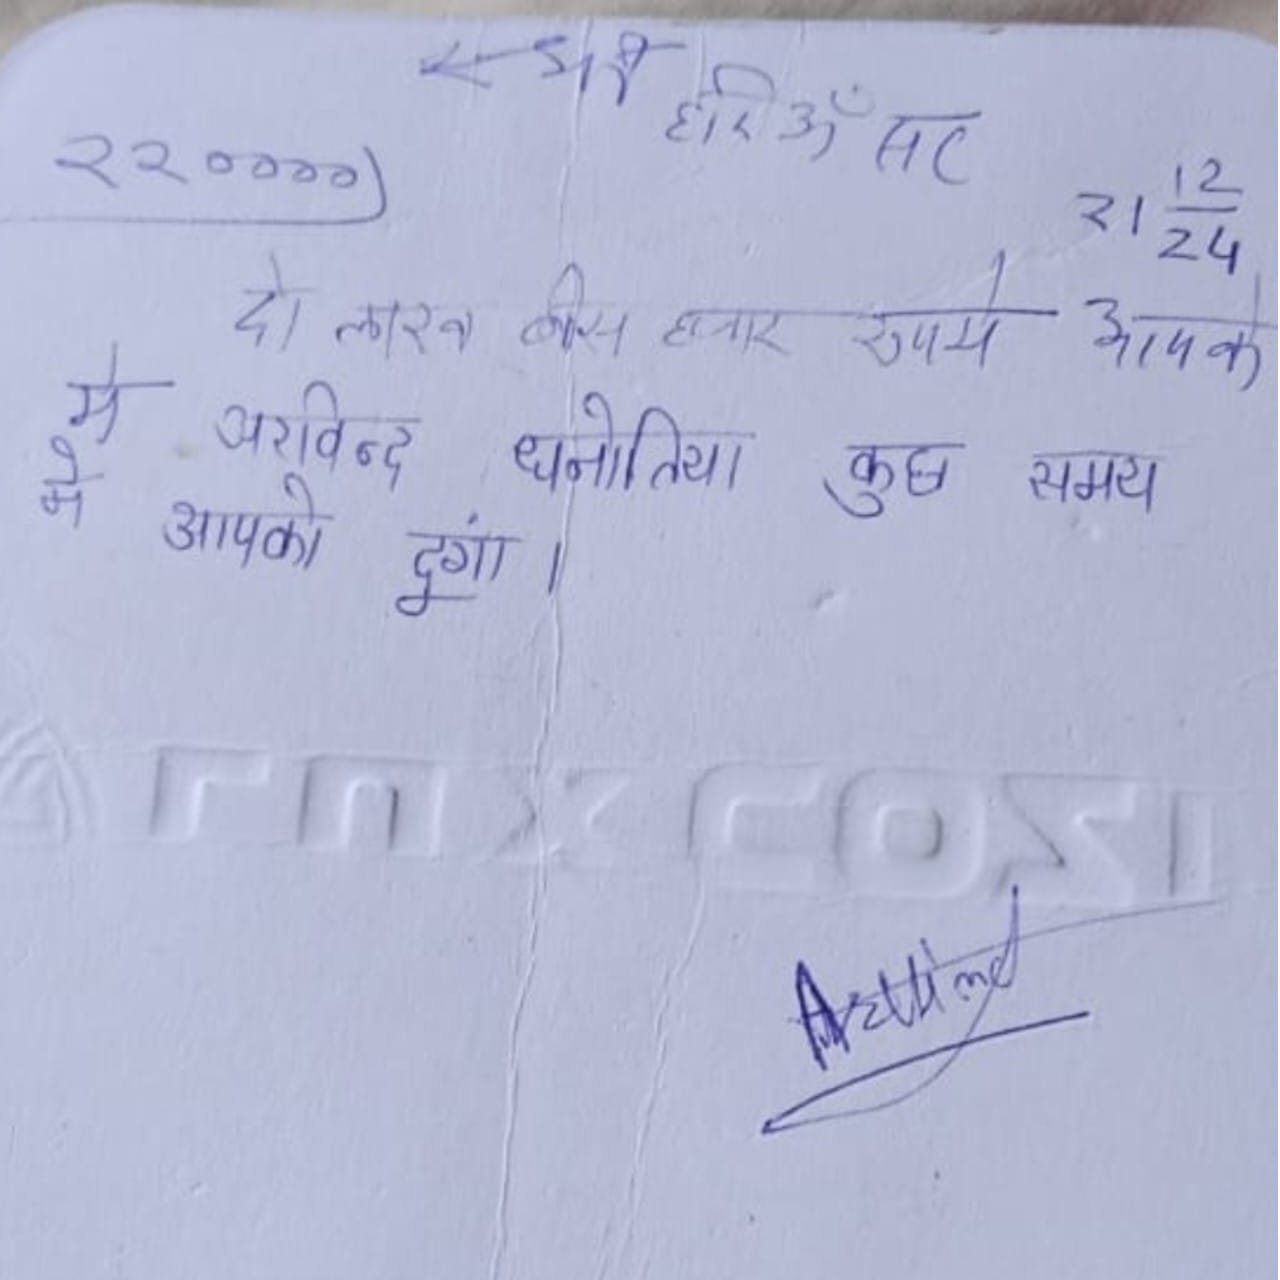 श्री
हरि ॐ सत
२२००००)
२१ 12/24
दो लाख बीस हजार रुपये आपके
मे अरविन्द धनोतिया कुछ समय
मे आपको दूगां।
Arvind